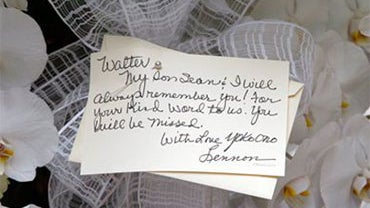 Walter
My Son Sean & I will
always remember you! For
your kind word to us. You
will be missed.
With Love Yoko Ono
Lennon